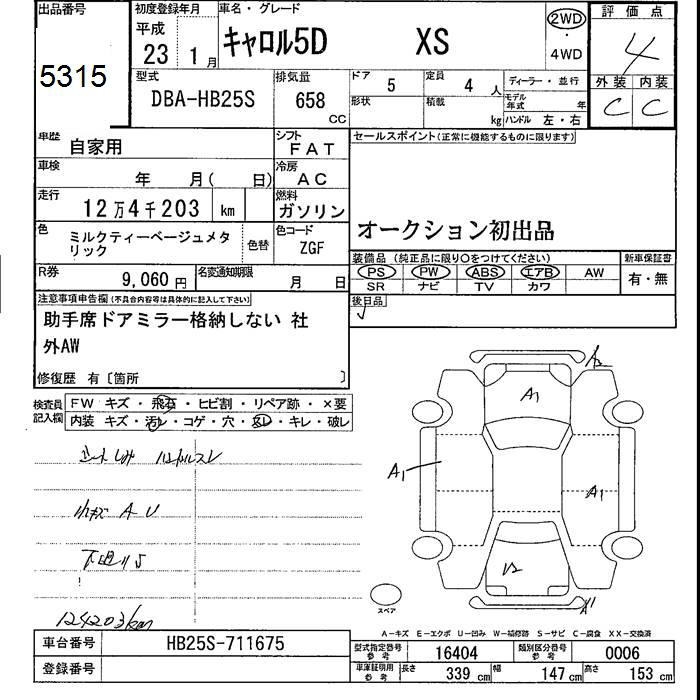 出品番号
5315
初度登録年月
平成
23 1月
車名・グレード
キャロル5D XS
2WD
・
4WD
評価点
4
外装 内装
C C
型式
DBA-HB25S
排気量
658
CC
ドア
5
定員
4人
形状
積載
kg
ディーラー・並行
モデル年式 年
ハンドル 左・右
車歴
自家用
シフト
FAT
車検
年 月( 日)
冷房
AC
走行
12万4千203 km
燃料
ガソリン
色
ミルクティーベージュメタリック
色替
色コード
ZGF
R券
9,060円
名変通知期限
月 日
セールスポイント(正常に機能するものに限ります)
オークション初出品
装備品 (純正品に限り○をつけてください)
PS PW ABS エアB AW
SR ナビ TV カワ
新車保証書
有・無
後日品
注意事項申告欄(不具合内容等は具体的に記入して下さい)
助手席ドアミラー格納しない 社
外AW
修復歴 有〔箇所 〕
検査員
記入欄
FW キズ・飛石・ヒビ割・リペア跡・×要
内装 キズ・汚レ・コゲ・穴・スレ・キレ・破レ
シートしみ ハンドルスレ
小キズ A U
下廻りS
124203km
A1
A1
A1
スペア
A-キズ E-エクボ U-凹み W-補修跡 S-サビ C-腐食 XX-交換済
車台番号
HB25S-711675
登録番号
型式指定番号
参考
16404
類別区分番号
参考
0006
車庫証明用
参考
長さ 339 cm
幅 147 cm
高さ 153 cm